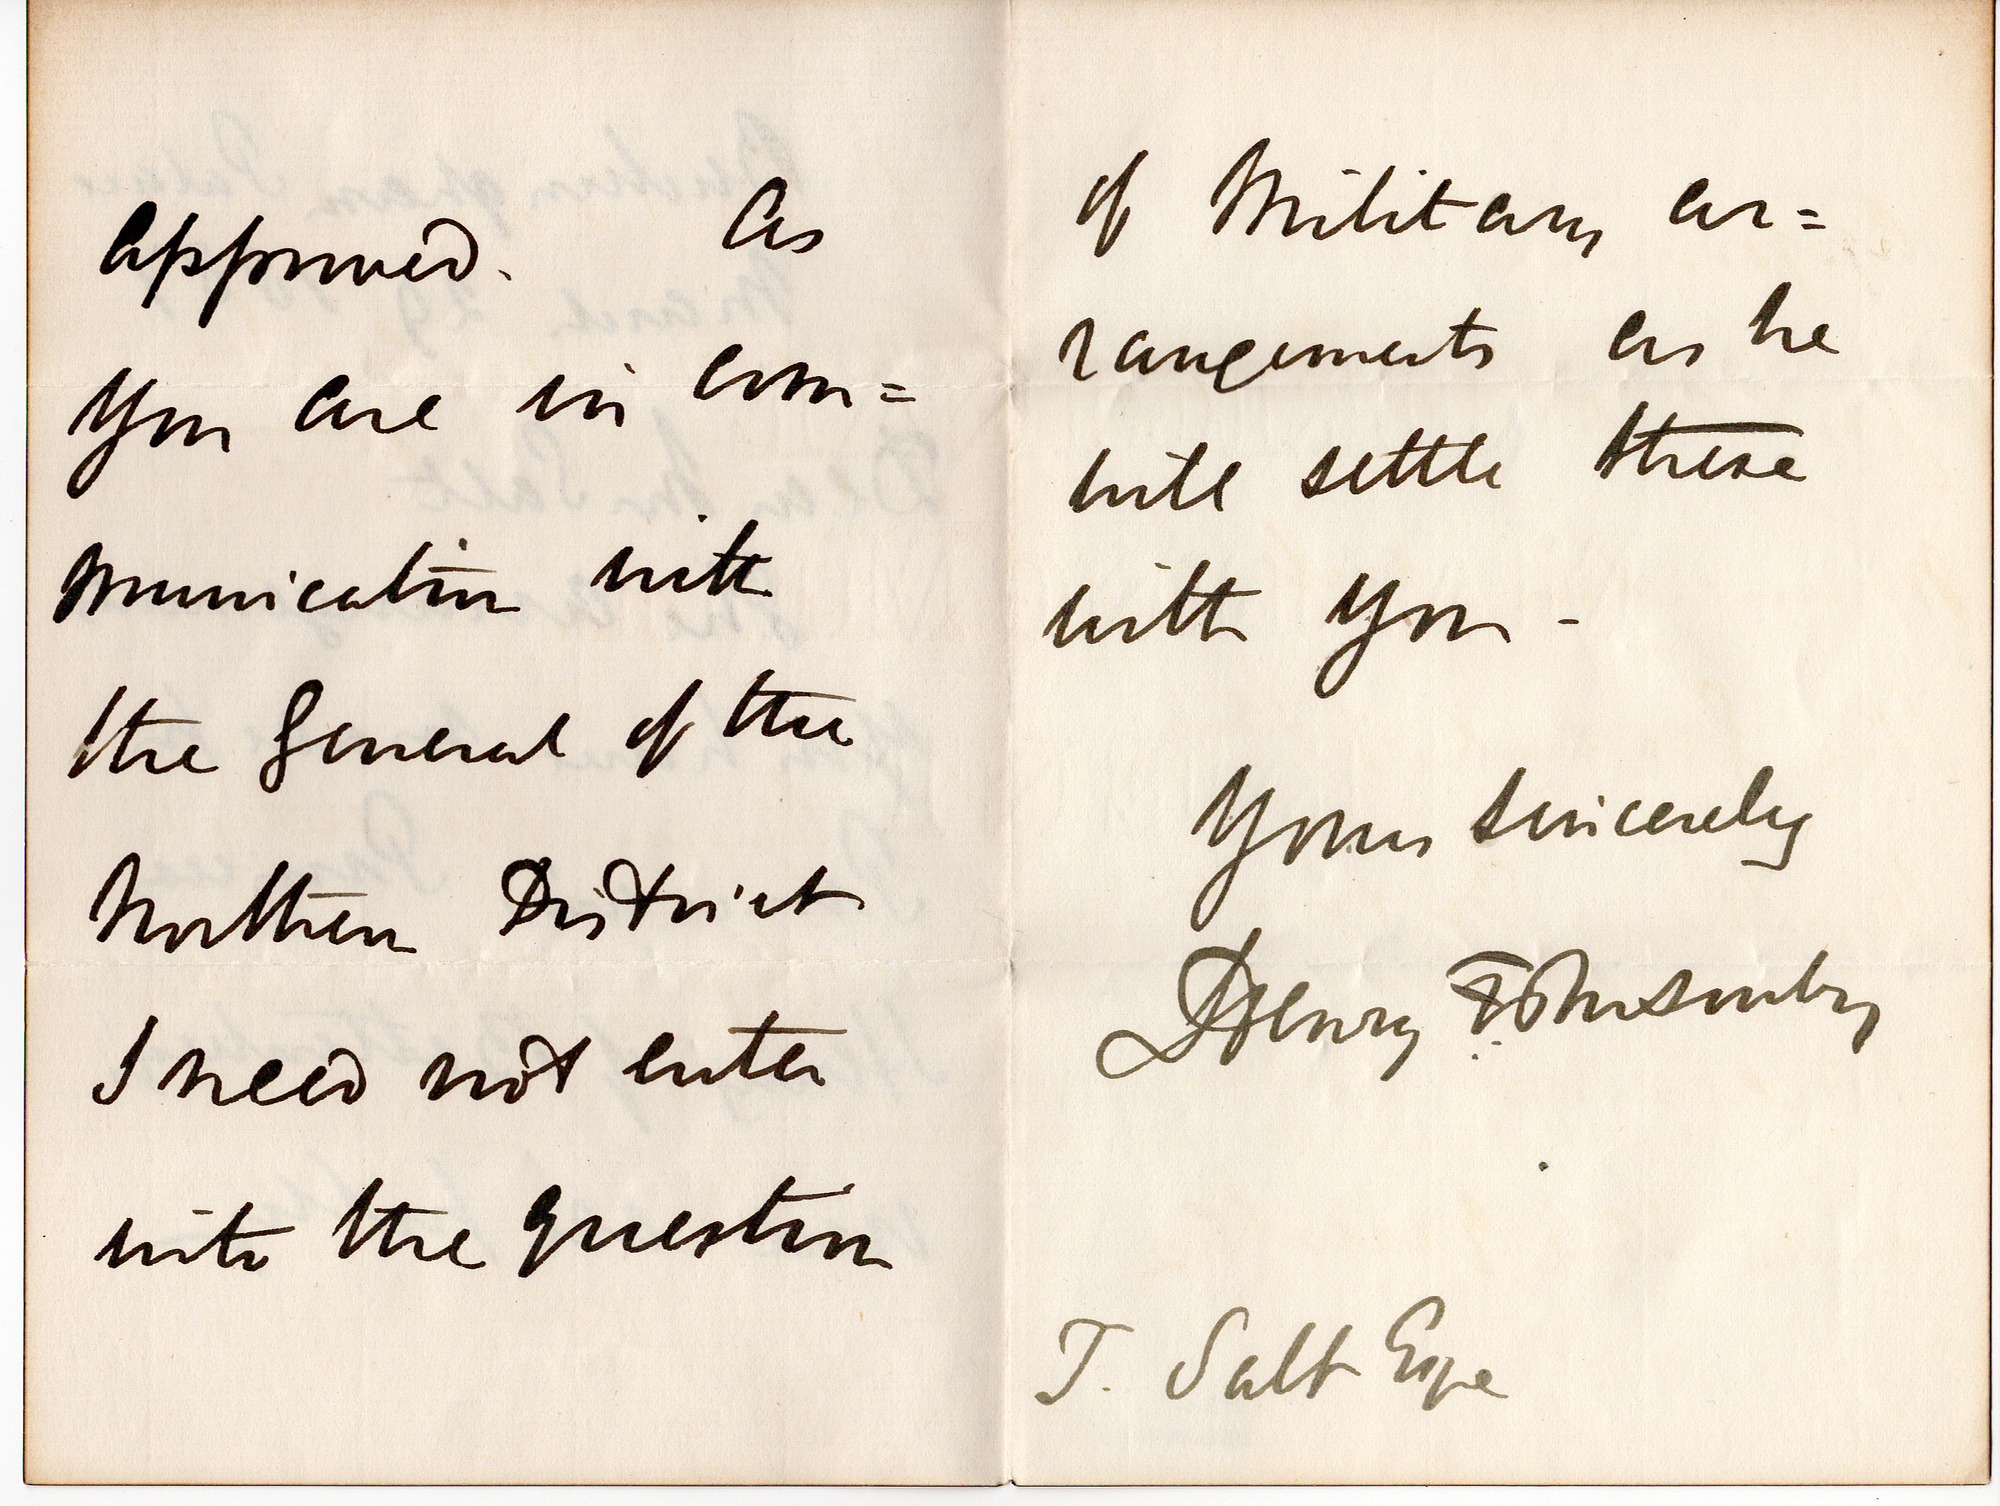 approved. As
you are in com=
munication with
the General of the
Northern District
I need not enter
into the question
of Military ar=
rangements as he
will settle these
with you -
Yours sincerely
Henry F Ponsonby
T. Salt Esqe